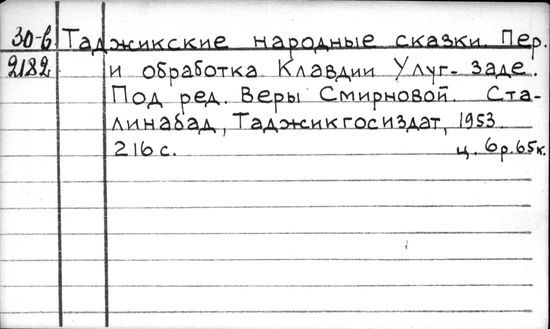 30-6 Таджикские народные сказки. Пер.
2182 и обработка Клавдии Улуг-заде.
Под ред. Веры Смирновой. Ста-
линабад, Таджикгосиздат, 1953.
216 с. ц. 6р.65к.